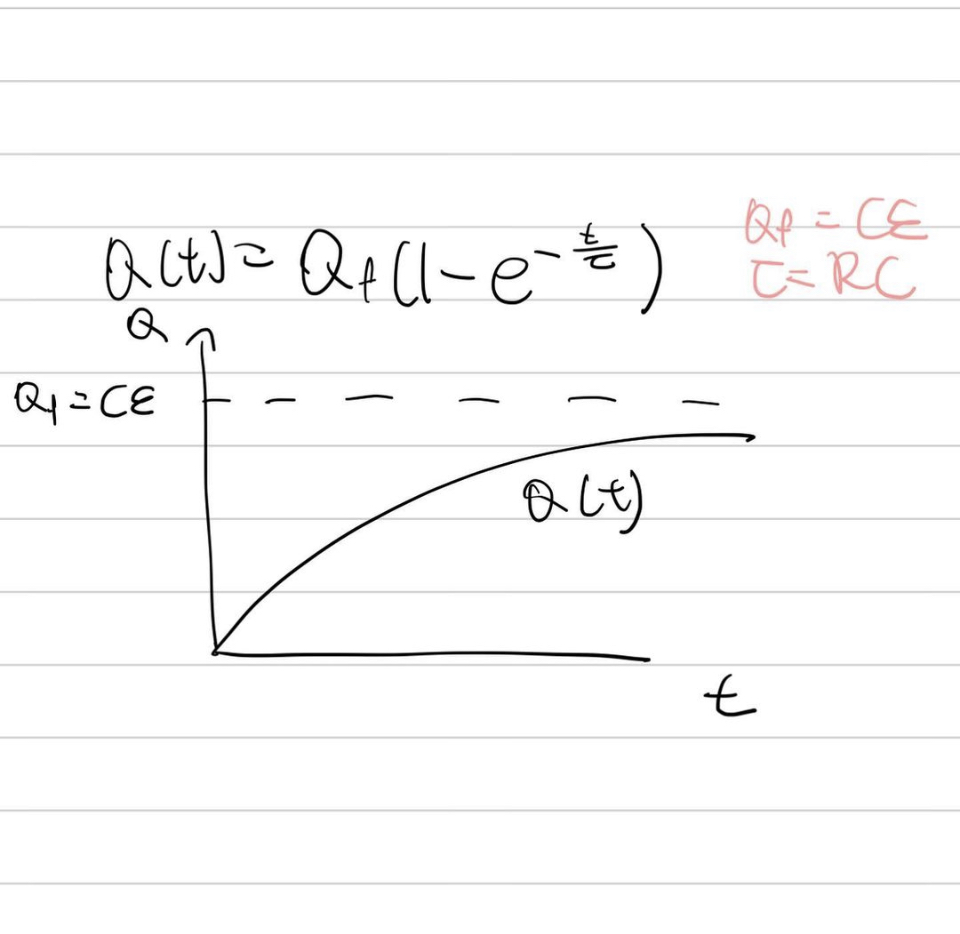 Q(t) = Q_f(1 - e^{-t/τ})
Q_f = Cℰ
τ = RC
Q
Q_f = Cℰ
Q(t)
t